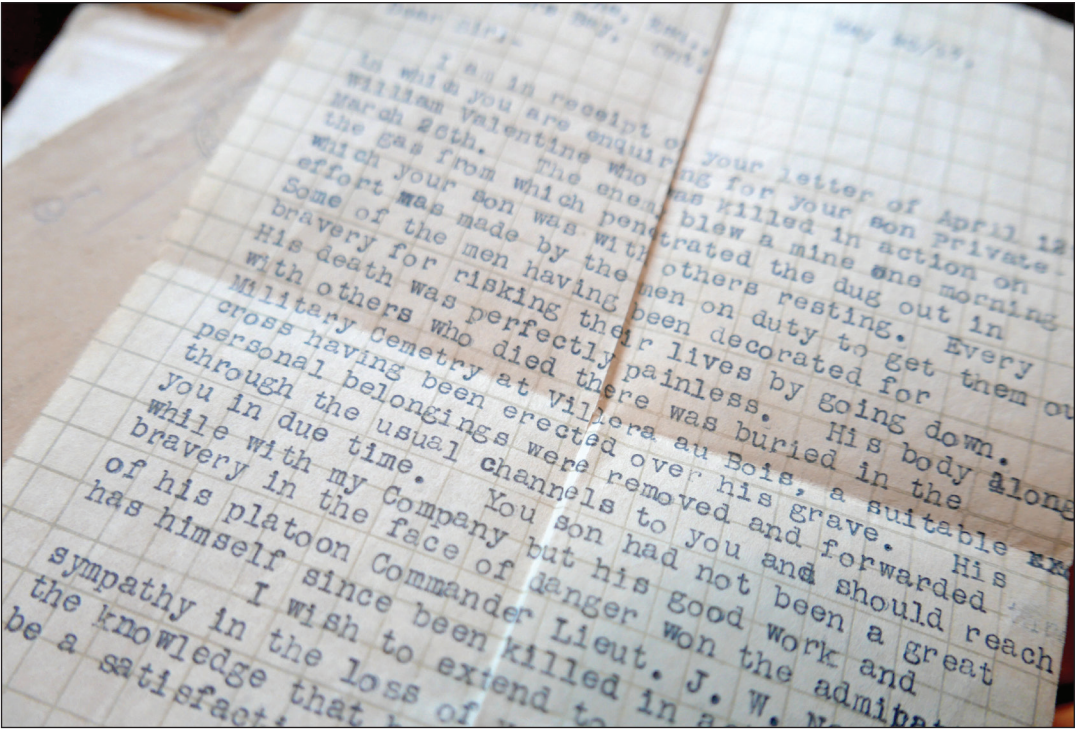 Bay, Ont,
Dear Sir:-
I am in receipt o your letter of April 12
in which you are enquiring for your son Private
William Valentine who was killed in action on
March 26th. The enem blew a mine one morning
the gas from which penetrated the dug out in
which your son was with others resting. Every
effort was made by the men on duty to get them ou
Some of the men having been decorated for
bravery for risking their lives by going down.
His death was perfectly painless. His body along
with others who died there was buried in the
Military Cemetry at Villera au Bois, a suitable
cross having been erected over his grave. His
personal belongings were removed and forwarded
through the usual channels to you and should reach
you in due time. You son had not been a great
while with my Company but his good work and
bravery in the face of danger won the admirat
of his platoon Commander Lieut. J. W.
has himself since been killed in a
I wish to extend to
sympathy in the loss of
the knowledge that
be a satisfacti